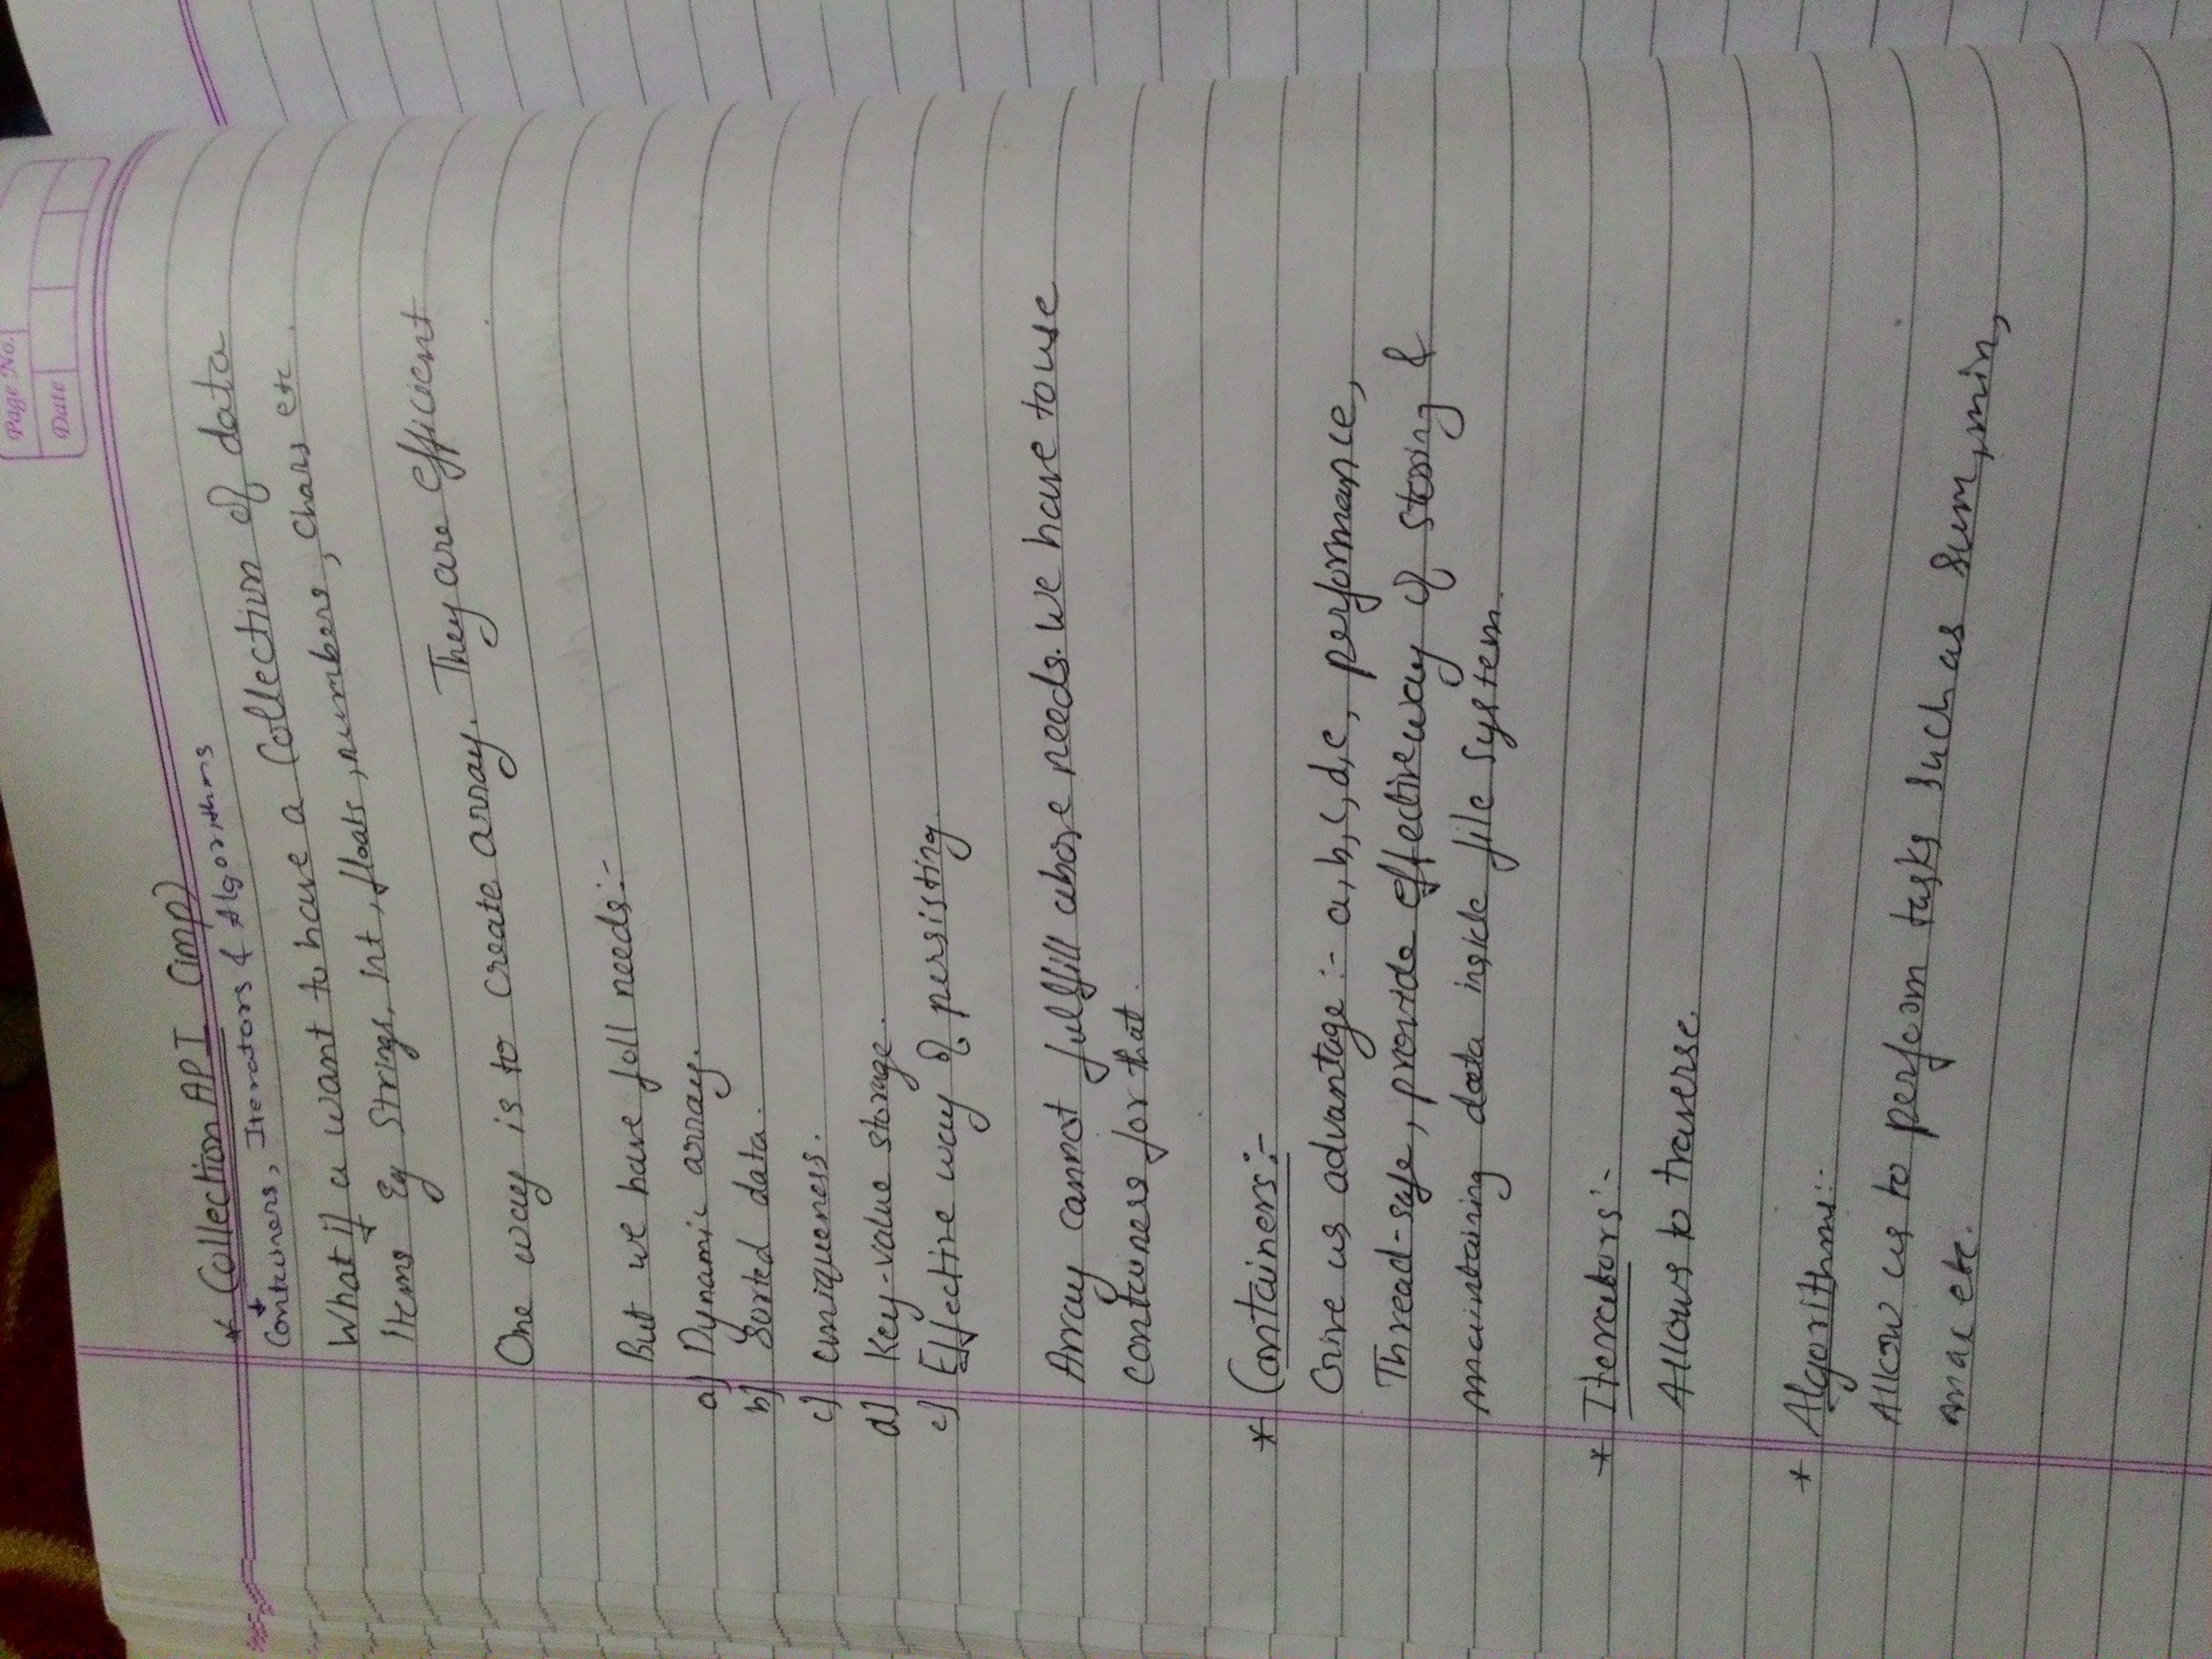 Page No.
Date
* Collection API (imp)
Containers, Iterators & Algorithms
What if u want to have a Collection of data
Items Eg Strings, Int, floats, numbers, Chars etc.
One way is to create array. They are efficient
But we have foll needs:-
a) Dynamic array.
b) Sorted data.
c) uniqueness.
d) Key-value storage.
e) Effective way of persisting.
Array cannot fullfill above needs. We have to use
containers for that.
* Containers:-
Give us advantage :- a,b,c,d,e, performance,
Thread-safe, provide effective way of storing &
maintaining data inside file system.
* Iterators:-
Allows to traverse
* Algorithms:-
Allow us to perform tasks such as Sum, min,
max etc.